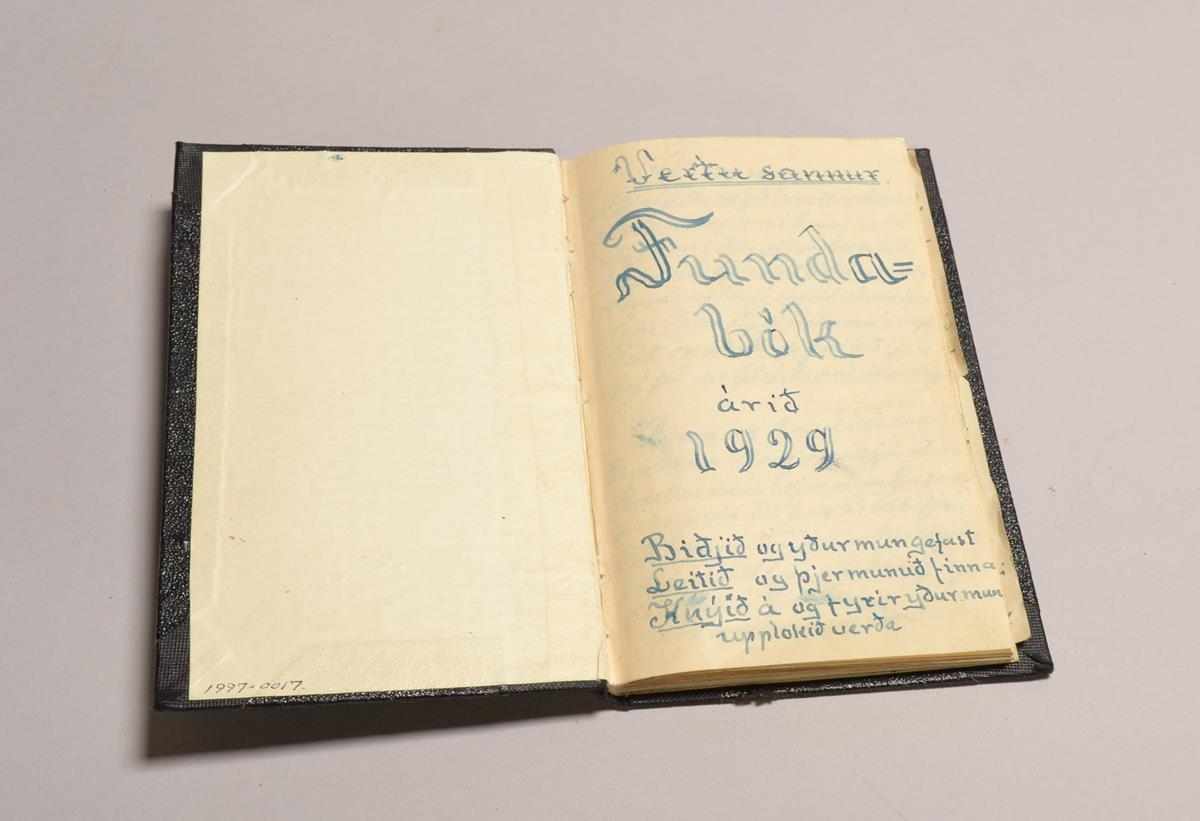 Vertu sannur.
Funda=
bók
árið
1929
Biðjið og yður mun gefast
Leitið og þjer munuð finna;
Knýið á og fyrir yður mun
upplokið verða
1997-0017.